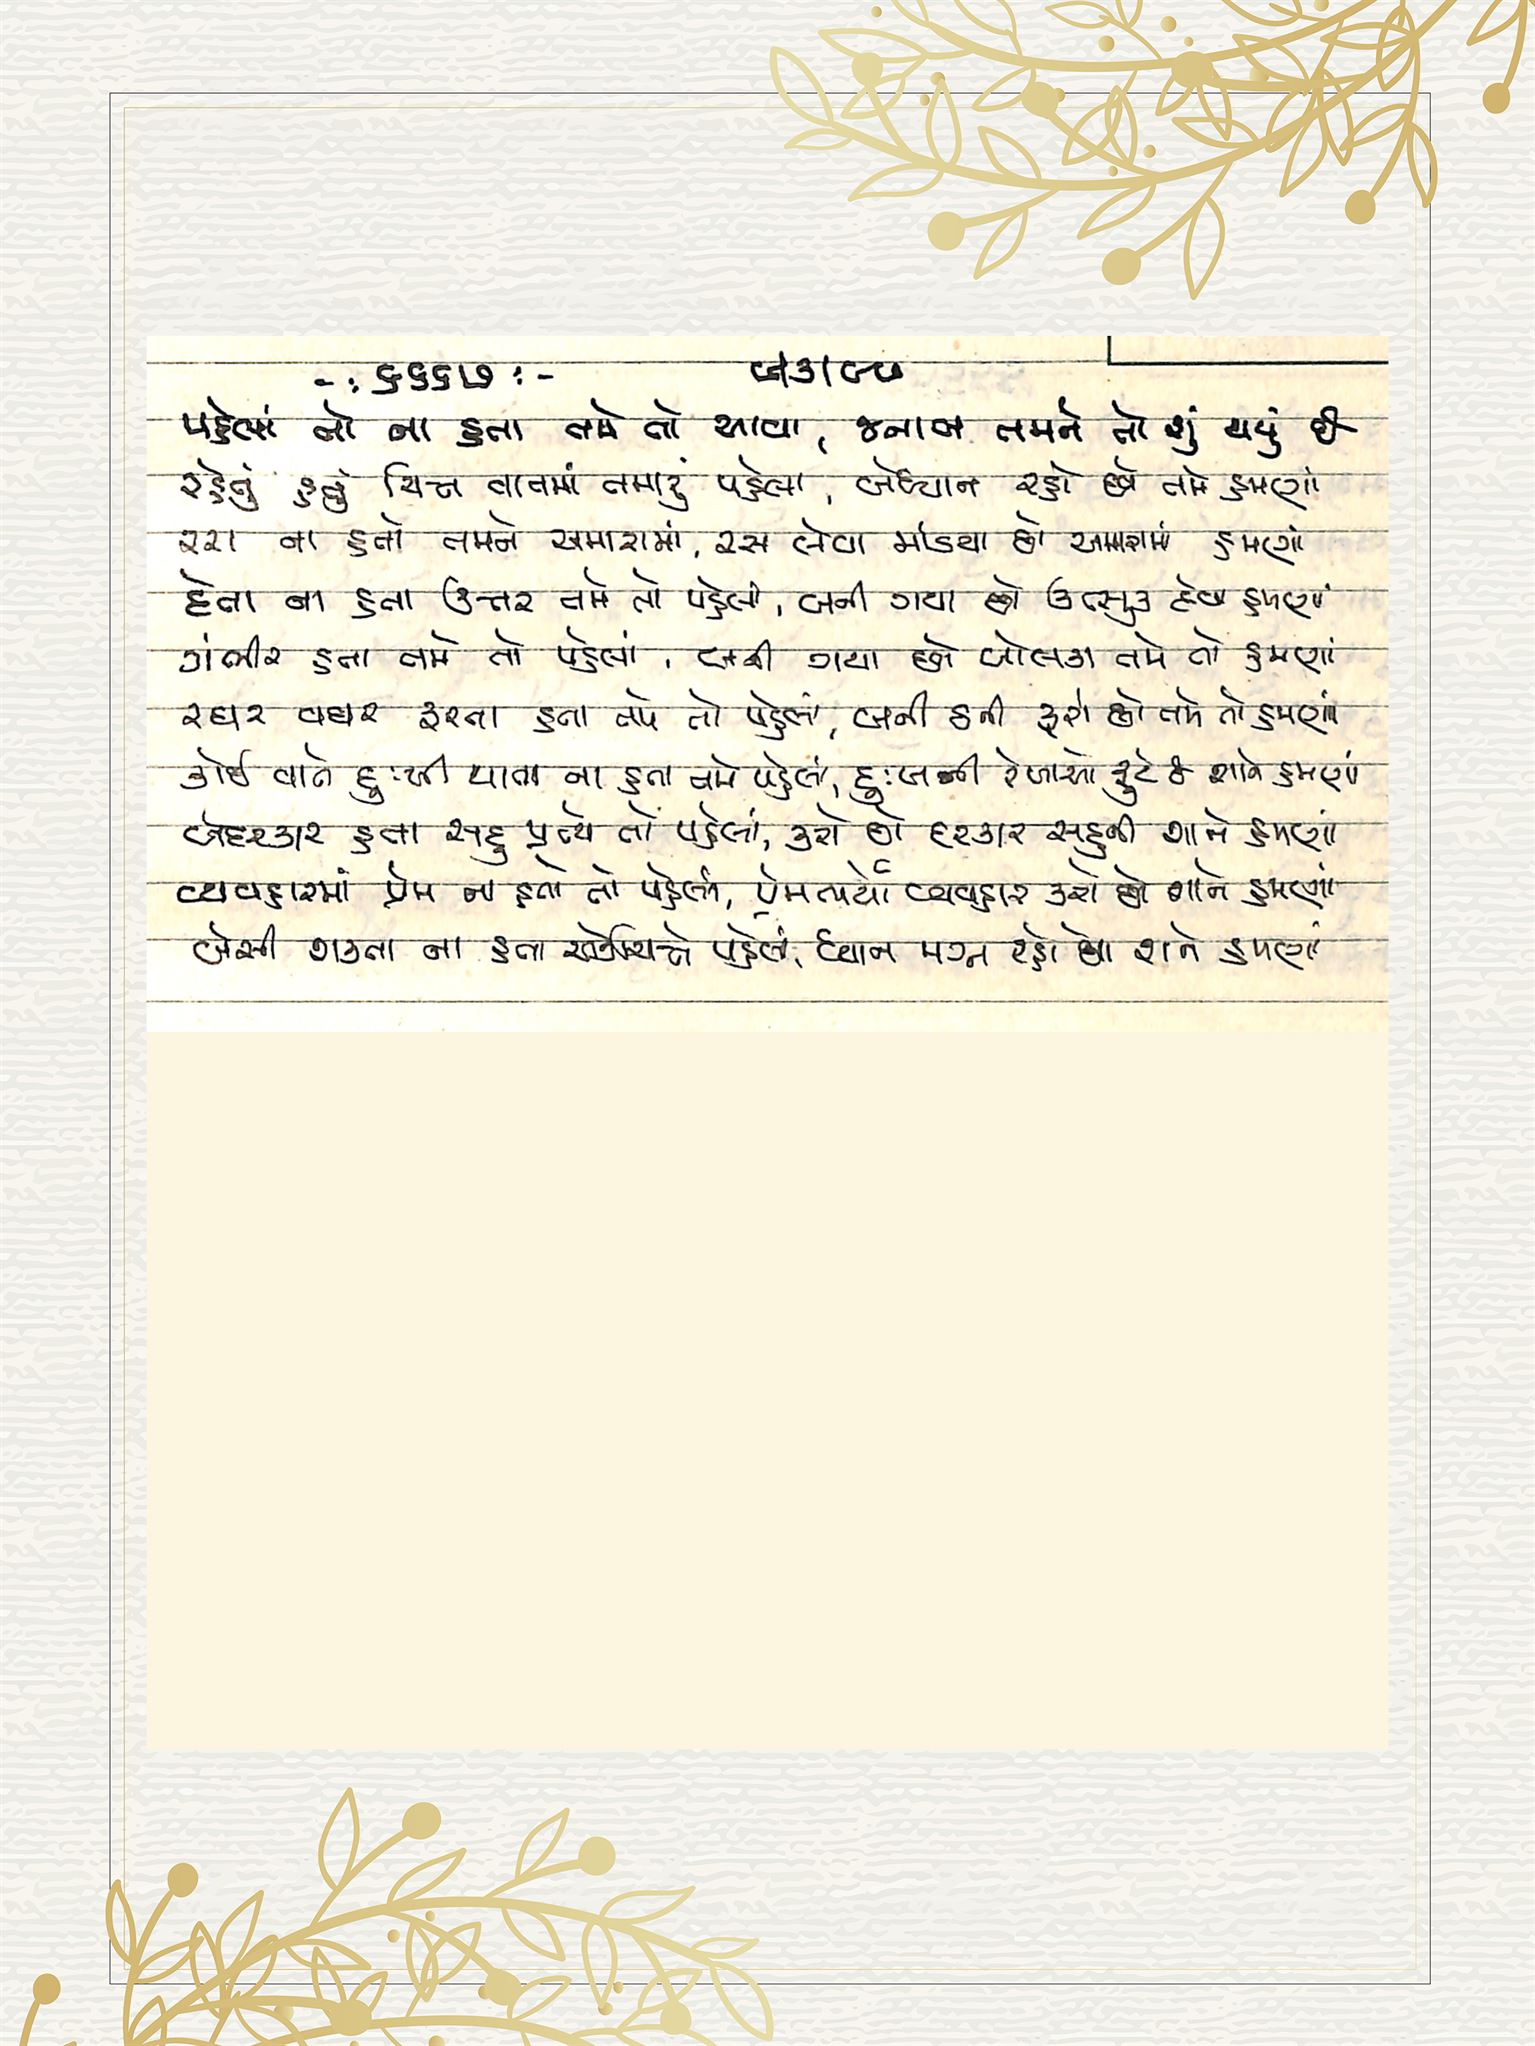 -: ૬૬૬૭ :-
પહેલાં તો ના હતા તમે તો આવા, જનાબ તમને તો શું થયું છે
રહેતું હતું ચિત્ત વાતમાં તમારું પહેલા, બેધ્યાન રહો છો તમે હમણાં
રસ ના હતો તમને અમારામાં, રસ લેવા માંડયા છો અમારામાં હમણાં
દેતા ના હતા ઉત્તર તમે તો પહેલાં, બની ગયા છો ઉત્સુક દેવા હમણાં
ગંભીર હતા તમે તો પહેલાં, બની ગયા છો બોલકા તમે તો હમણાં
રઘર વઘર ફરતા હતા તમે તો પહેલાં, બની ઠની ફરો છો તમે તો હમણાં
કોઈ વાતે દુઃખી થાતા ના હતા તમે પહેલાં, દુઃખની રેખાઓ ફુટે છે શાને હમણાં
બેદરકાર હતા સહુ પ્રત્યે તો પહેલાં, કરો છો દરકાર સહુની શાને હમણાં
વ્યવહારમાં પ્રેમ ના હતો તો પહેલાં, પ્રેમ વ્યવહાર કરો છો શાને હમણાં
બેસી શકતા ના હતા પહેલાં, ધ્યાન મગ્ન રહો છો શાને હમણાં